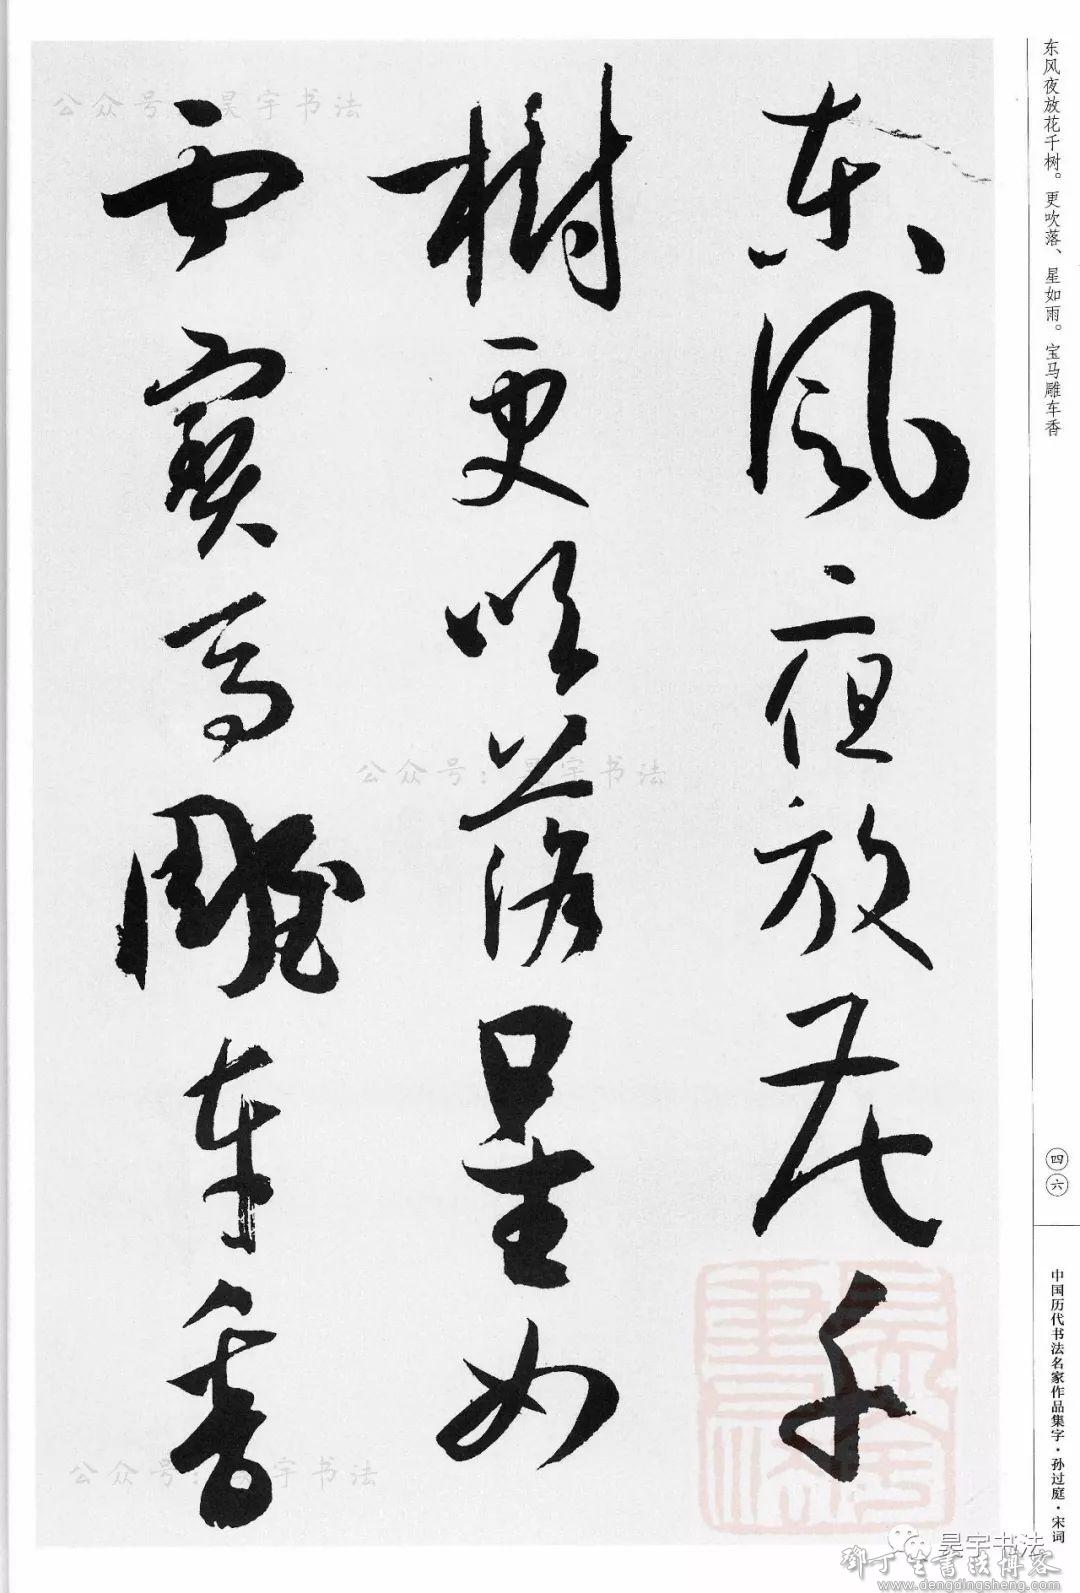 东风夜放花千树。更吹落、星如雨。宝马雕车香
東風夜放花千
樹更吹落星如
雨寳馬雕車香
四六
中国历代书法名家作品集字·孙过庭·宋词
公众号：昊宇书法
公众号：昊宇书法
公众号：昊宇书法
昊宇书法
邓丁生书法博客
www.dengdingsheng.com